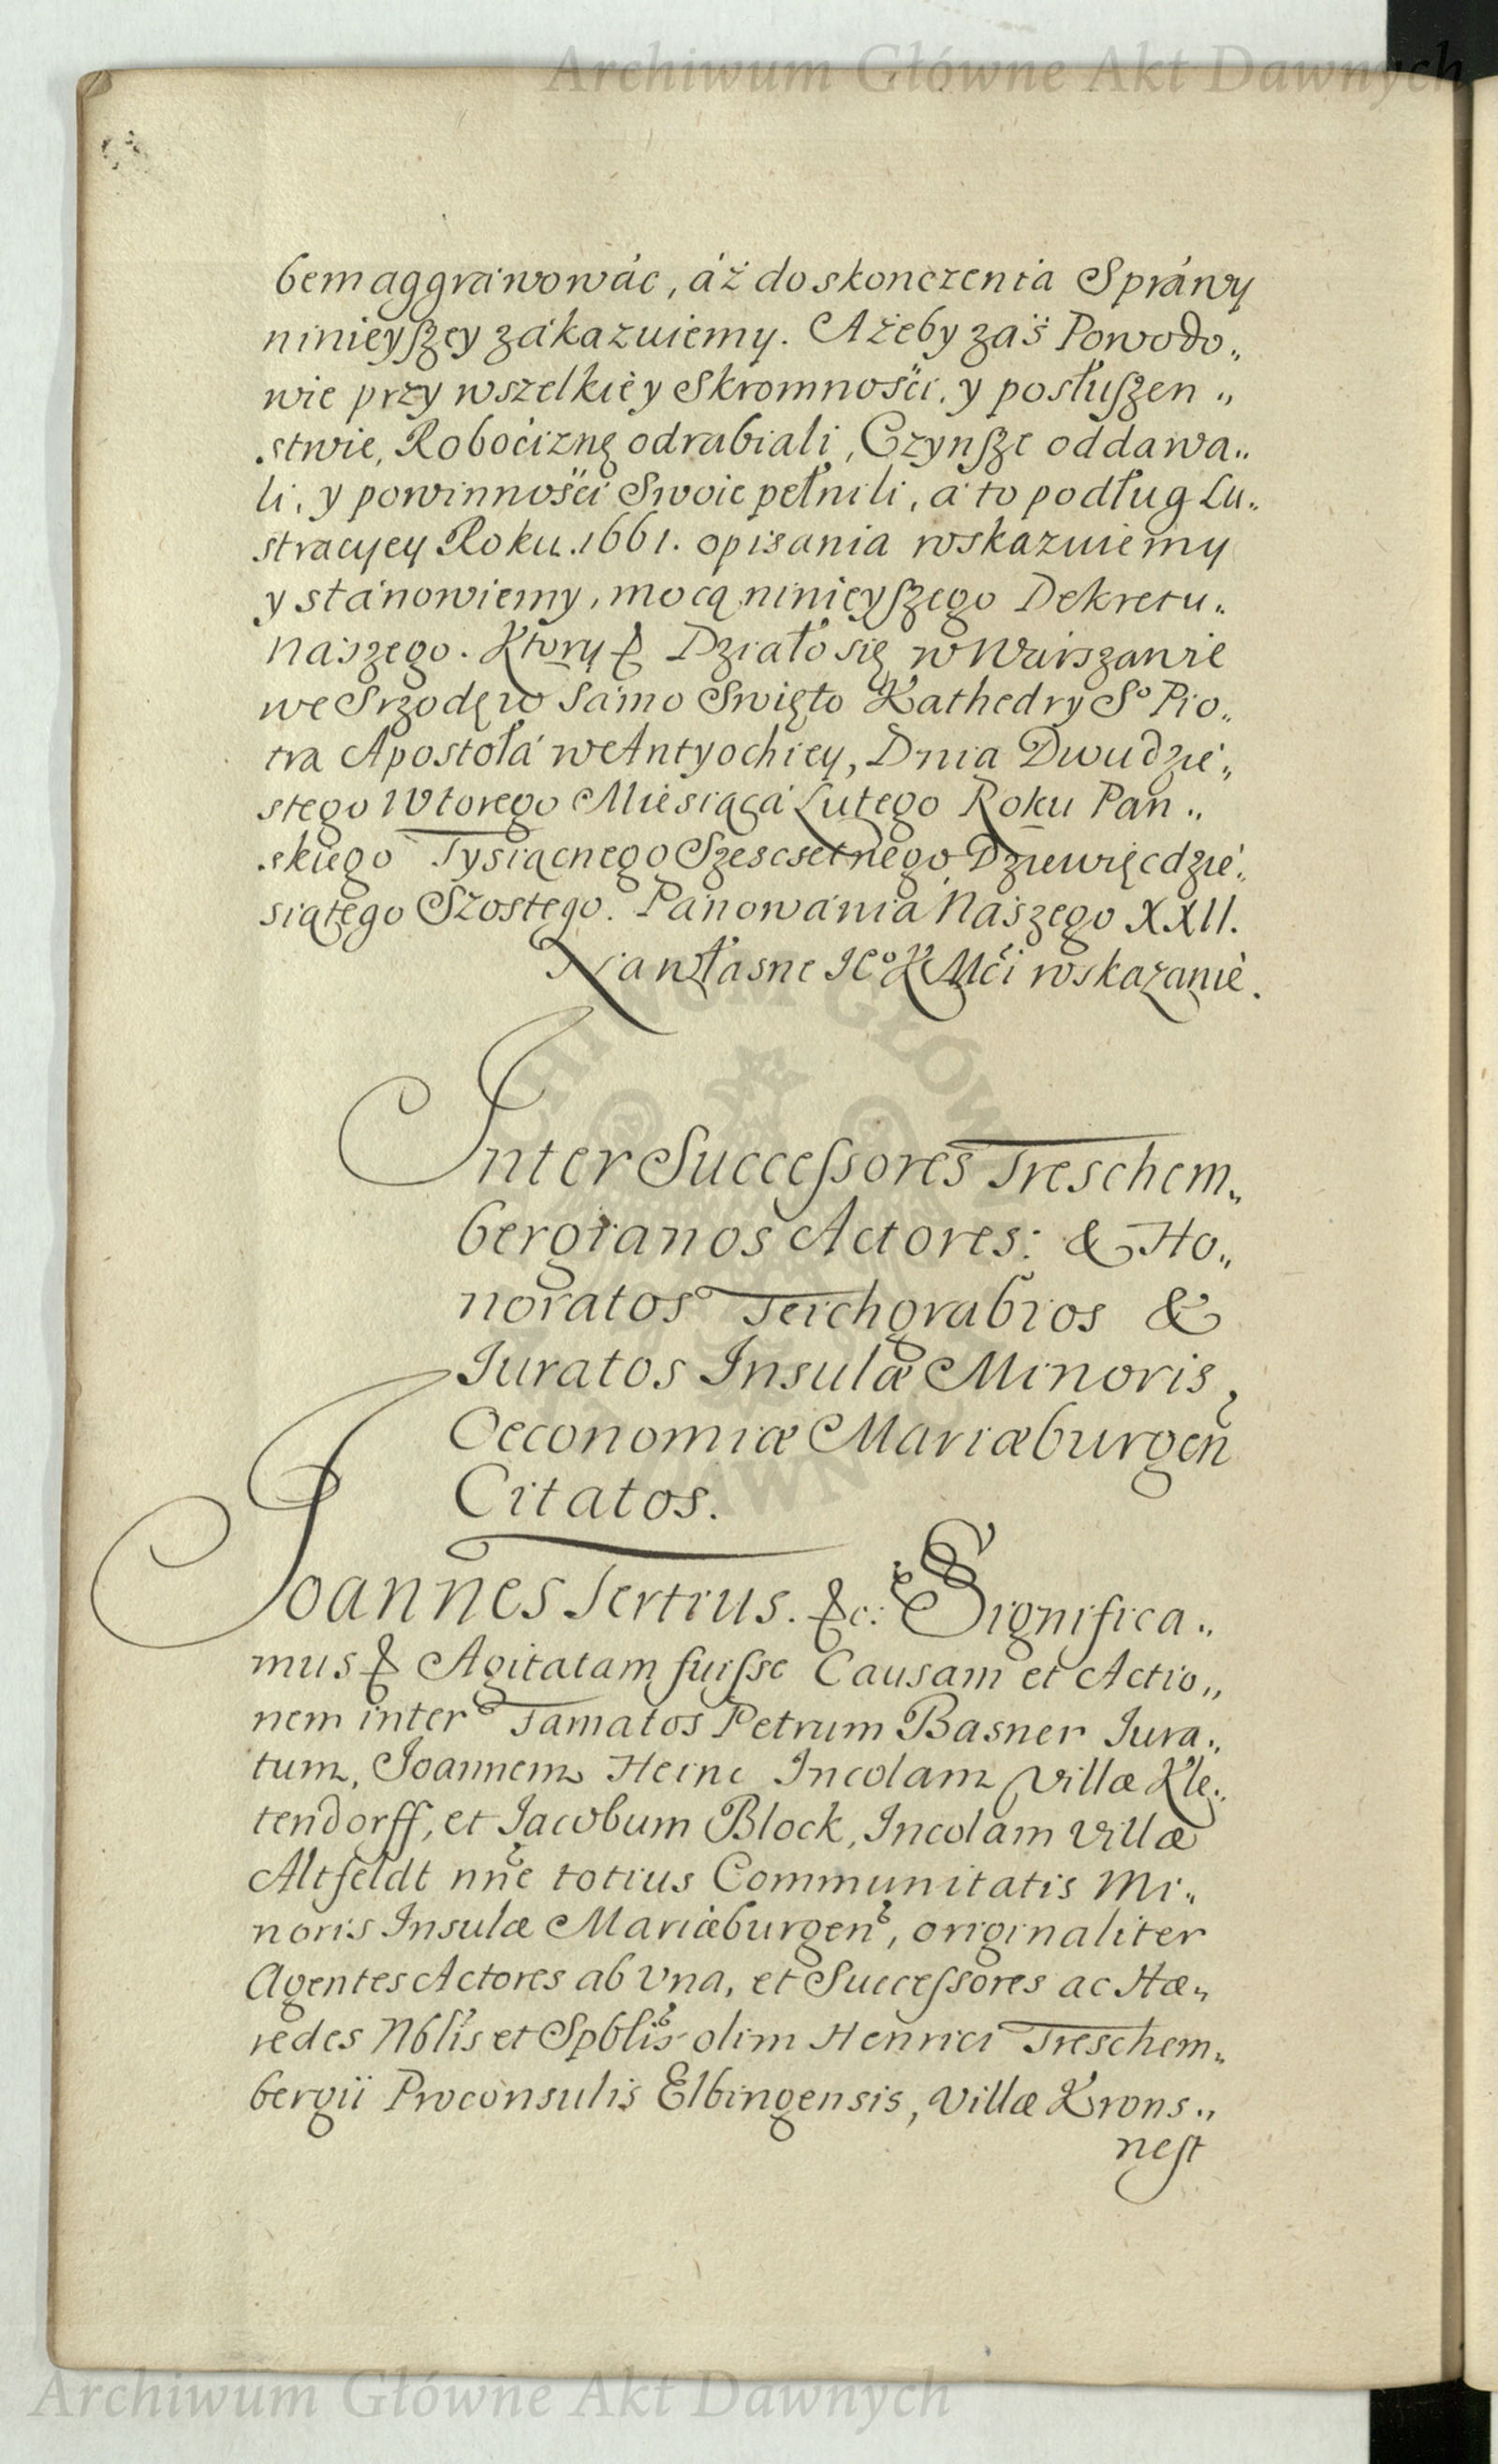 Archiwum Główne Akt Dawnych
bem aggráwowáć, áż do skonczenia Spráwy
ninieyszey zákazuiemy. Ażeby zaś Powodo„
wie przy wszelkiey Skromności, y posłuszen„
stwie, Robociznę odrabiali, Czynsze oddawa„
li, y powinności Swoie pełnili, á to podług Lu„
stracyey Roku. 1661. opisania wskazuiemy
y stánowiemy, mocą ninieyszego Dekretu„
Nászego. Ktory & Działo się w Warszawie
we Srzodę w Sámo Swięto Kathedry So Pio„
tra Apostołá w Antyochiey, Dnia Dwudzie„
stego Wtorego Miesiąca Lutego Roku Pan„
skiego Tysiącnego Szescsetnego Dziewięcdzie„
siątego Szostego. Pánowánia Nászego XXII.
Na własne JCo K Mći wskazanie.
Inter Successores Treschem„
bergianos Actores: & Ho„
noratos Teichgrabios &
Iuratos Insulæ Minoris,
Oeconomiæ Mariæburgen
Citatos.
Joannes Tertius. &c: Significa„
mus & Agitatam fuisse Causam et Actio„
nem inter Famatos Petrum Basner Iura„
tum, Joannem Heine Incolam Villæ Kle„
tendorff, et Jacobum Block, Incolam Villæ
Altfeldt nne totius Communitatis Mi„
noris Insulæ Mariæburgen, originaliter
Agentes Actores ab Vna, et Successores ac Hæ„
redes Nblis et Spblis olim Henrici Treschem„
bergii Proconsulis Elbingensis, Villæ Krons„
nest
Archiwum Główne Akt Dawnych